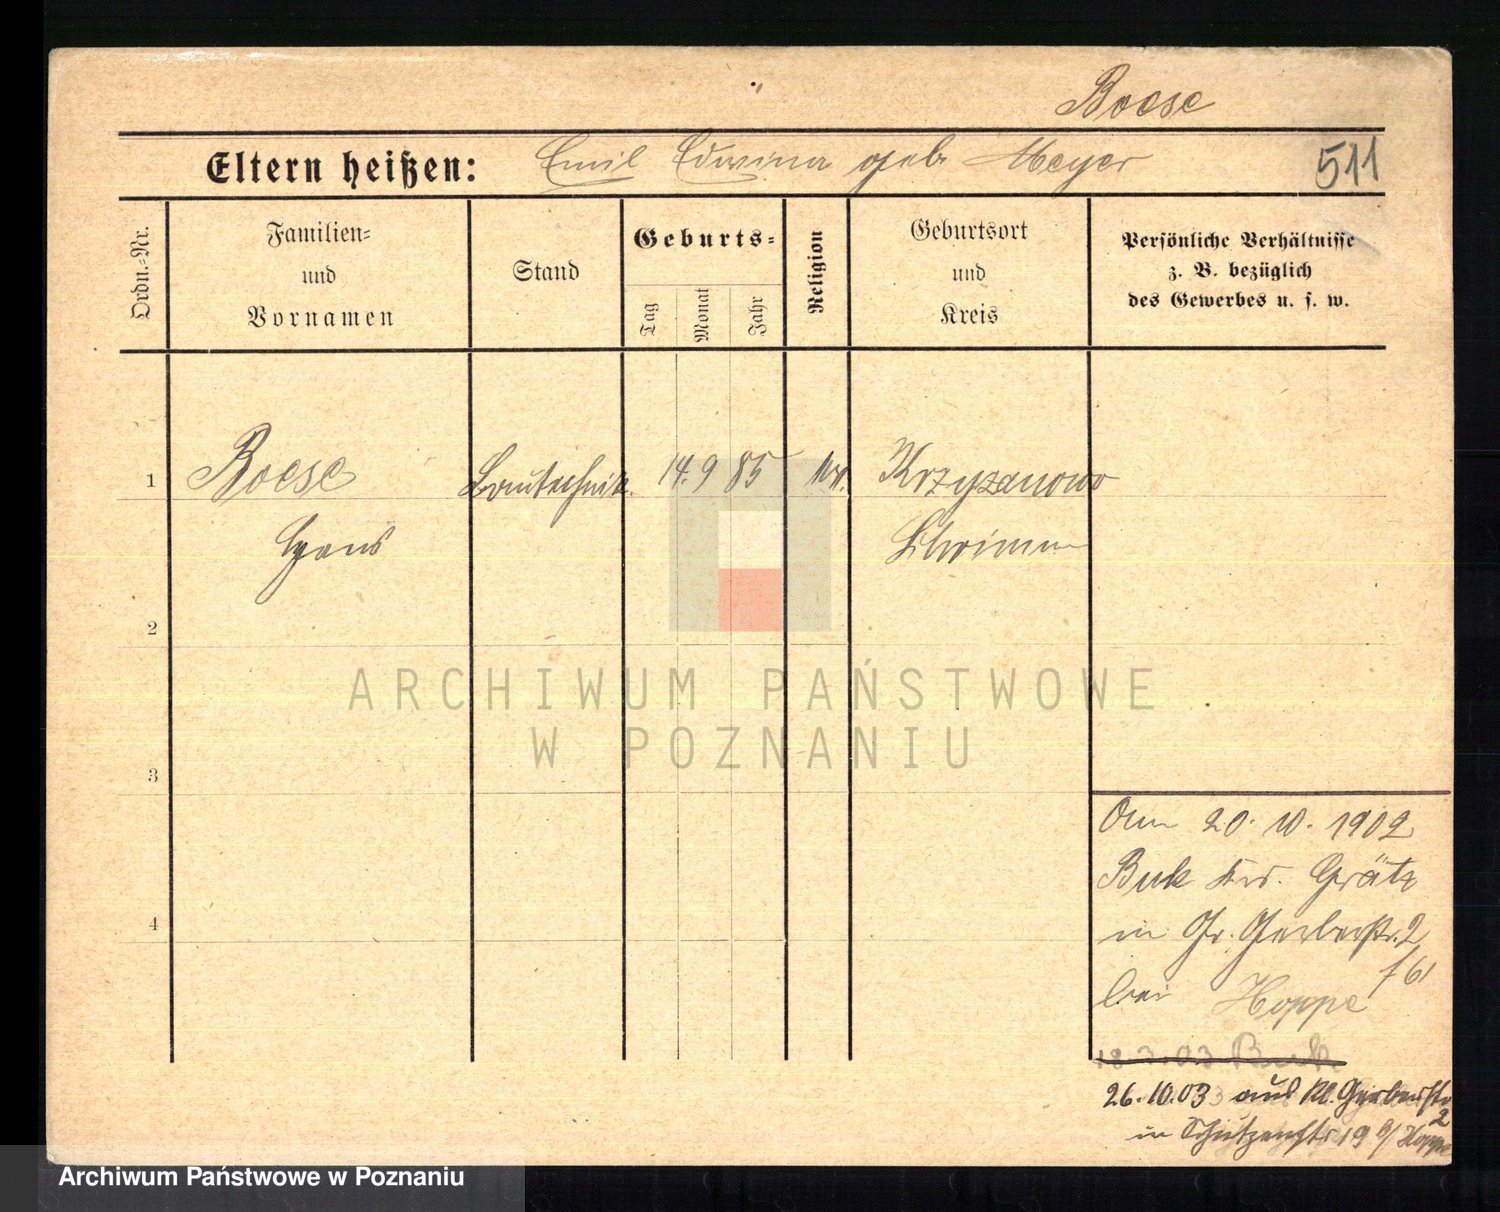 Boese
Eltern heißen: Emil Edwina geb Meyer
511
Ordn.=Nr.
Familien=
und
Vornamen
Stand
Geburts=
Tag
Monat
Jahr
Religion
Geburtsort
und
Kreis
Persönliche Verhältnisse
z. B. bezüglich
des Gewerbes u. s. w.
1
Boese
Bautechnik.
14. 9 85
Krzyzanowo
Schrimm
2
3
4
ARCHIWUM PAŃSTWOWE
W POZNANIU
20. 10. 1902
Buk Krs. Grätz
in Gr. Gerberstr. 2
bei Hoppe
f 61
18 3. 03 Buk
26.10.03 aus Kl. Gerberstr
2
in Schützenstr 19 b/ Hoppe
Archiwum Państwowe w Poznaniu